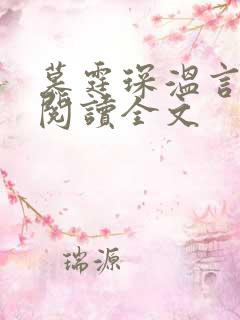 慕霆琛溫言
閱讀全文
瑞源